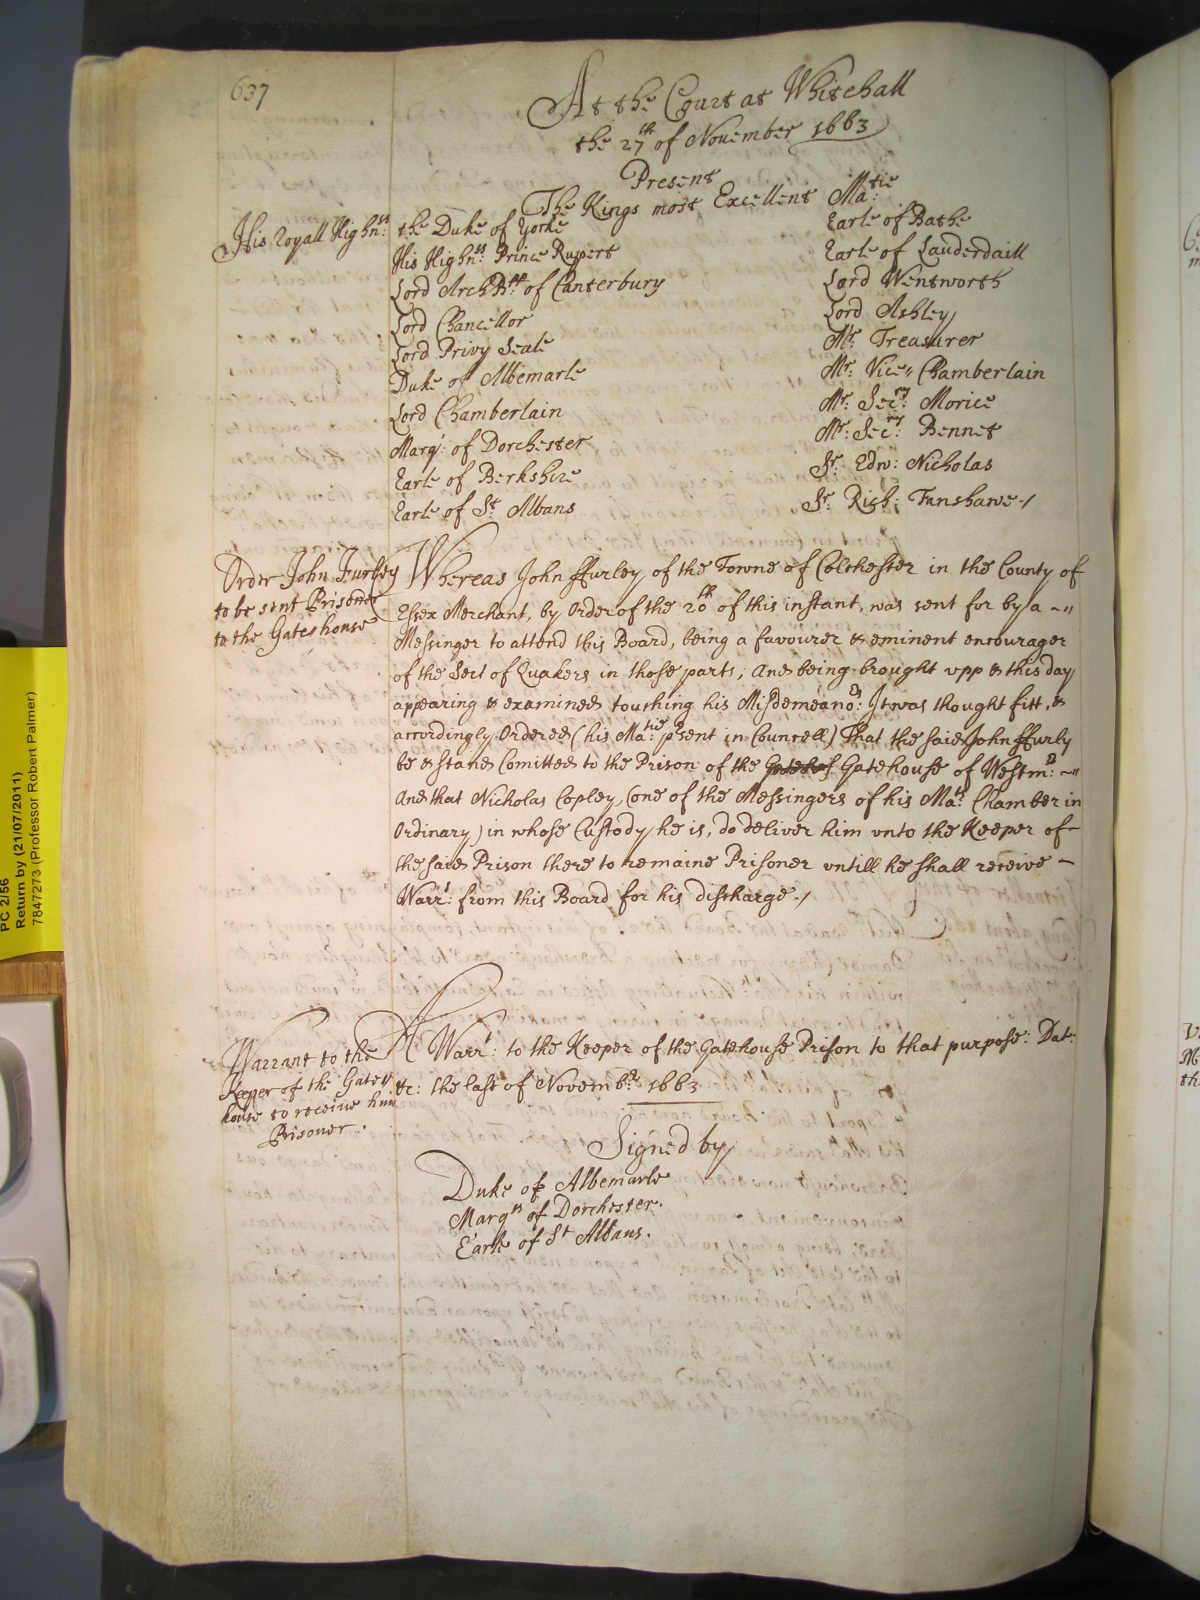 637
At the Court at Whitehall
the 27th of November 1663
Present
The Kings most Excellent Matie
His Royall Highnss: the Duke of Yorke
His Highnss: Prince Rupert
Lord ArchBpp: of Canterbury
Lord Chancellor
Lord Privy Seale
Duke of Albemarle
Lord Chamberlain
Marq: of Dorchester
Earle of Berkshire
Earle of St. Albans
Earle of Bathe
Earle of Lauderdaill
Lord Wentworth
Lord Ashley
Mr. Treasurer
Mr: Vice" Chamberlain
Mr: Secry: Morice
Mr: Secry: Bennet
Sr. Edw: Nicholas
Sr. Rich: Fanshawe./
Order John Furley
to be sent Prisoner
to the Gatehouse
Whereas John ffurley of the Towne of Colchester in the County of
Essex Merchant, by Order of the 20th of this instant, was sent for by a -"
Messinger to attend this Board, being a favourer & eminent encourager
of the Sect of Quakers in those parts; And being brought vpp & this day
appearing & examined touching his Misdemeanors: It was thought fitt, &
accordingly Ordered (his Matie: psent in Councell) That the said John ffurly
be & stand Comitted to the Prison of the Gatehouse of Westmr: -"
And that Nicholas Copley, (one of the Messingers of his Mats: Chamber in
Ordinary) in whose Custody he is, do deliver him vnto the Keeper of-
the said Prison there to remaine Prisoner vntill he shall receive -
Warrt: from this Board for his discharge./
Warrant to the
Keeper of the Gate
house to receive him
Prisoner.
A Warrt: to the Keeper of the Gatehouse Prison to that purpose: Dat:
&c: the last of Novembr: 1663
Signed by
Duke of Albemarle
Marqss of Dorchester.
Earle of St Albans.
PC 2/56
Return by (21/07/2011)
7847273 (Professor Robert Palmer)